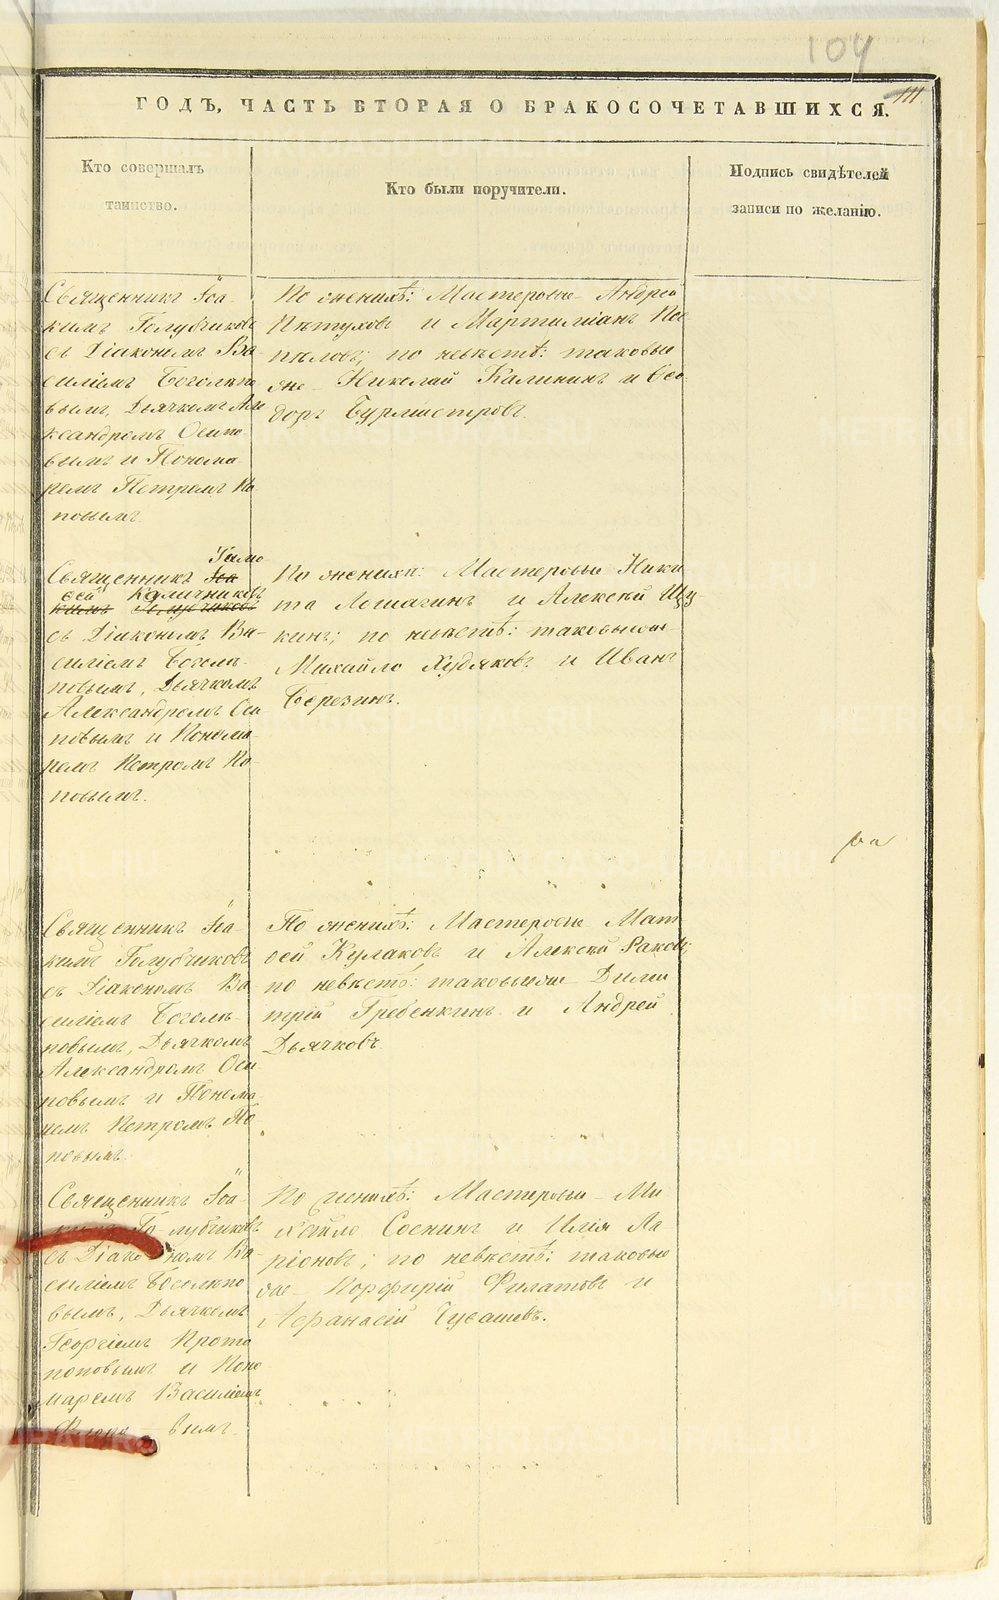 104
111
ГОДЪ, ЧАСТЬ ВТОРАЯ О БРАКОСОЧЕТАВШИХСЯ.
Кто совершалъ
таинство.
Кто были поручители.
Подпись свидѣтелей
записи по желанію.
Священникъ Іоа-
кимъ Голубчиковъ
съ Діакономъ Ва
силіемъ Боголѣпо
вымъ, Дьячкомъ Але
ксандромъ Осипо
вымъ и Понома
ремъ Петромъ По
повымъ.
По женихѣ: Мастеровые Андрей
Пѣтуховъ и Мартиміанъ Пос
пѣловъ; по невѣстѣ: таковые
же Николай Калининъ и Ѳео
доръ Бурмистровъ.
Священникъ Іоа
Тимо
ѳей Калачниковъ
кимъ Голубчиковъ
съ Діакономъ Ва-
силіемъ Боголѣ-
повымъ, Дьячкомъ
Александромъ Оси
повымъ и Понома
ремъ Петромъ По
повымъ.
По женихѣ: Мастеровые Ники
та Лошагинъ и Алексѣй Щу-
кинъ; по невѣстѣ: таковыеже
Михайло Худяковъ и Иванъ
Березинъ.
Священникъ Іоа-
кимъ Голубчиковъ
съ Діакономъ Ва
силіемъ Боголѣ-
повымъ, Дьячкомъ
Александромъ Оси
повымъ и Понома
ремъ Петромъ По
повымъ.
По женихѣ: Мастеровые Мат
ѳей Кулаковъ и Алексѣй Раковъ;
по невѣстѣ: таковыеже Дими
трій Гребенкинъ и Андрей
Дьячковъ.
Священникъ Іоа-
кимъ Голубчиковъ
съ Діакономъ Ва-
силіемъ Боголѣпо
вымъ, Дьячкомъ
Георгіемъ Прото
поповымъ и Поно
маремъ Василіемъ
вымъ
По женихѣ: Мастеровые Ми
хайло Соснинъ и Илія Ла
ріоновъ; по невѣстѣ: таковые
же Порфирій Филатовъ и
Аѳанасій Чувашевъ.
METRIKI.GASO-URAL.RU